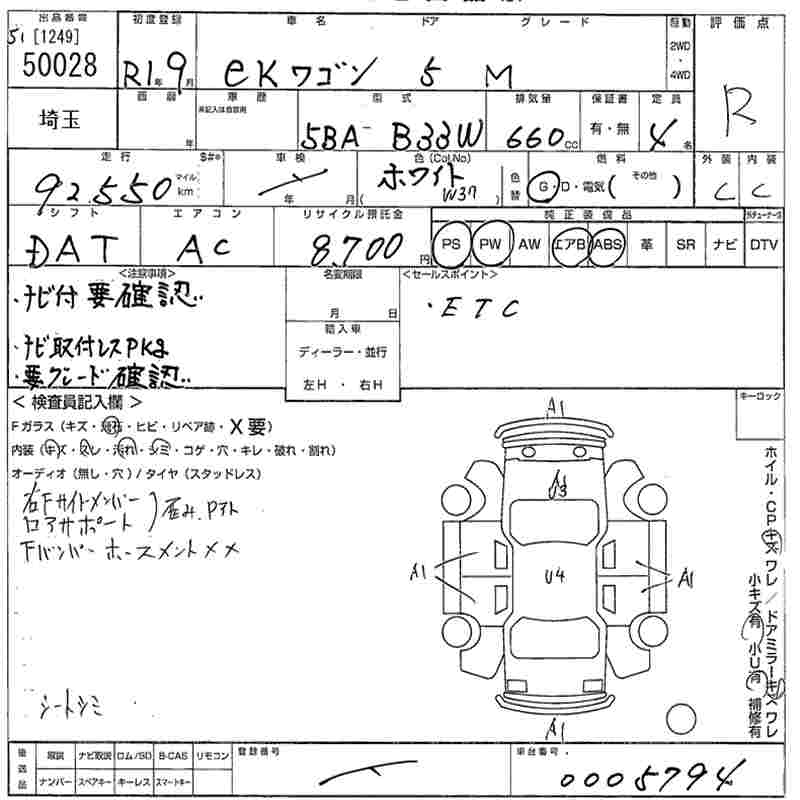 出品番号
51 [1249]
50028
初度登録
R1年 9月
車名 ドア グレード
eKワゴン 5 M
駆動
2WD
・
4WD
評価点
R
埼玉
西暦
年
車歴
未記入は自家用
型式
5BA- B33W
排気量
660cc
保証書
有・無
定員
4名
走行 $#*
92,550 マイル km
車検
年 月
色(Col.No)
ホワイト
W37
色替
燃料
G・D・電気( その他 )
外装 内装
C C
シフト
DAT
エアコン
AC
リサイクル預託金
8,700円
純正装備品
PS PW AW エアB ABS 革 SR ナビ DTV
<注意事項>
・ナビ付要確認..
・ナビ取付レスPKな
・要グレード確認..
名変期限
月 日
輸入車
ディーラー・並行
左H ・ 右H
<セールスポイント>
・ETC
<検査員記入欄>
Fガラス(キズ・飛石・ヒビ・リペア跡・X要)
内装(キズ・スレ・汚れ・シミ・コゲ・穴・キレ・破れ・割れ)
オーディオ(無し・穴)/タイヤ(スタッドレス)
右Fサイドメンバー
ロアサポート )歪み.Pアト
Fバンパーホースメントメメ
シートシミ
キーロック
A1
U3
A1
U4
A1
A1
ホイル・CPキズワレ/ドアミラーキズワレ
小キズ有 小U有 補修有
後送品
取説 ナビ取説 ロム/SD B-CAS リモコン
ナンバー スペアキー キーレス スマートキー
登録番号
車台番号
0005794